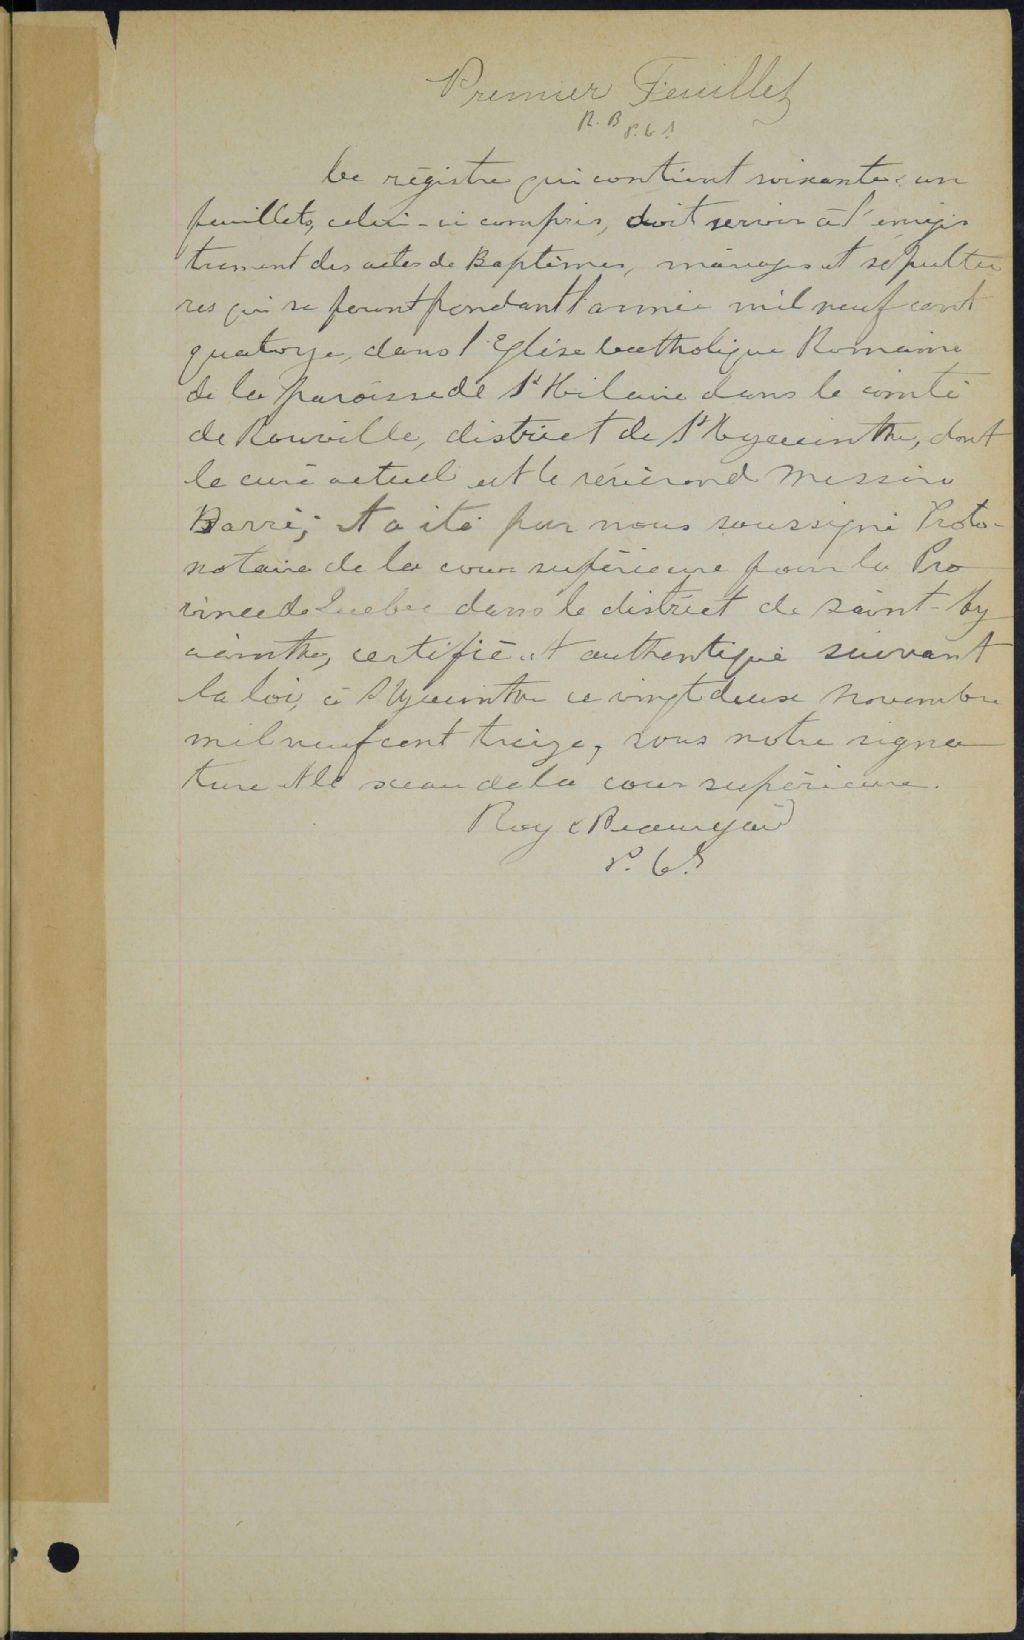 Premier Feuillet
R. B P. C. S.
Ce régistre qui contient soixante & un
feuillets, celui-ci compris, doit servir à l'enrégis
trement des actes de Baptêmes, mariages et sépultu
res qui se feront pendant l'année mil neuf cent
quatorze, dans l'Eglise Catholique Romaine
de la paroisse de St Hilaire dans le comté
de Rouville, district de St Hyacinthe, dont
le curé actuel est le révérend Messire
Barré; et a été par nous soussigné Proto-
notaire de la cour supérieure pour la Pro
vince de Quebec dans le district de Saint-Hy
acinthe, certifié et authentiqué suivant
la loi, à St Hyacinthe ce vingt deux Novembre
mil neuf cent treize, sous notre signa
ture et le sceau de la cour supérieure.
Roy & Beauregard
P. C. S